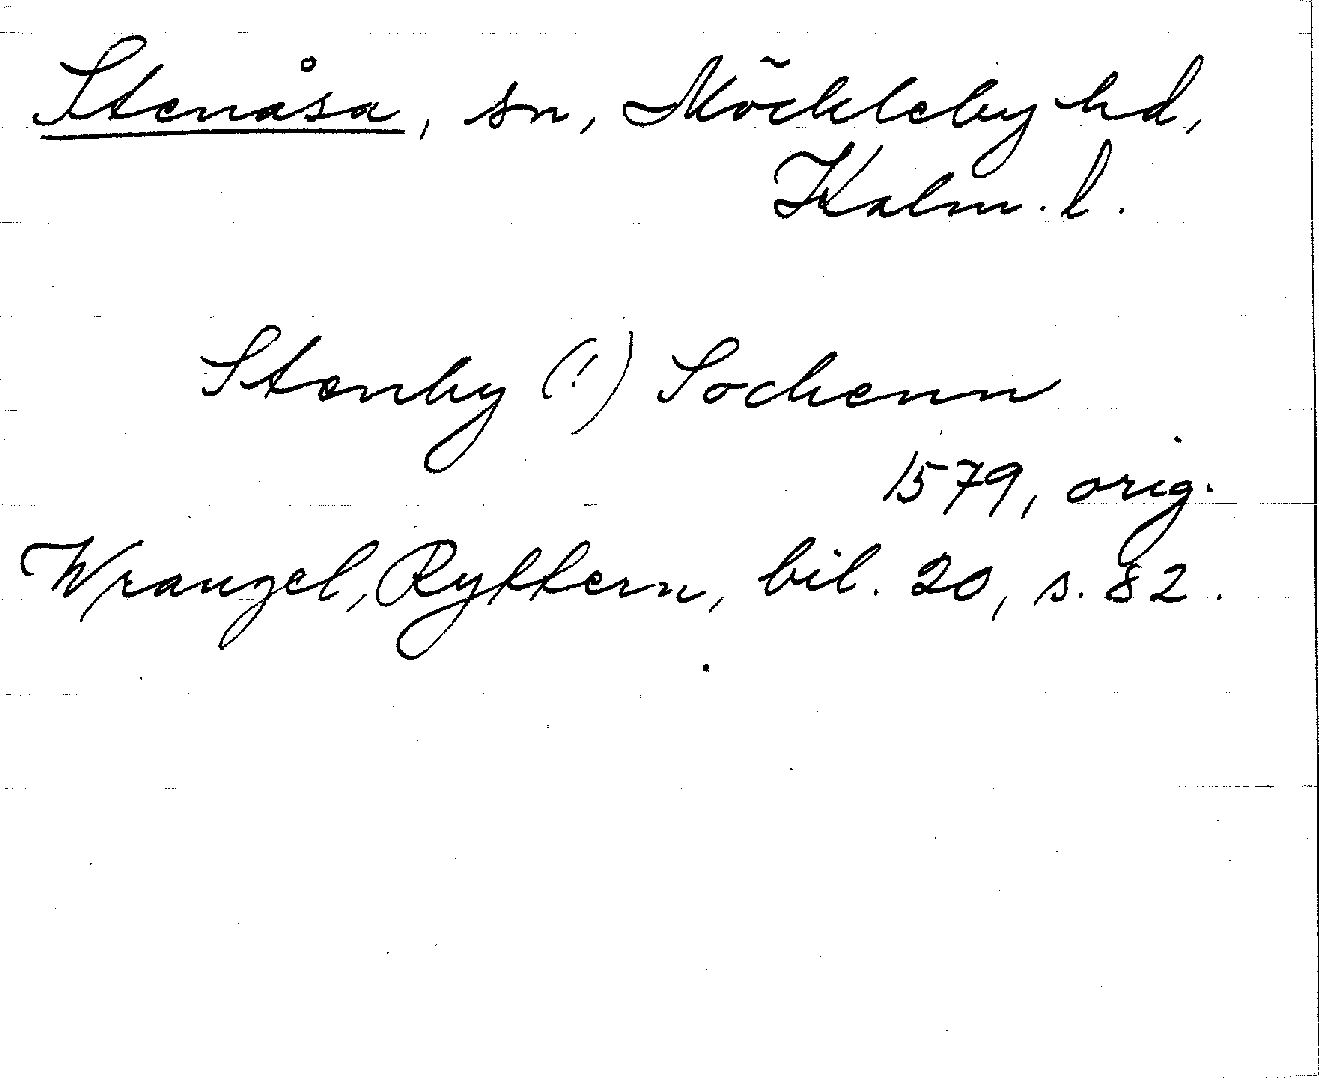 Stenåsa, sn, Möckleby hd,
Kalm. l.
Stenby (!) Sochenn
1579, orig.
Wrangel, Ryttern, bil. 20, s. 82.